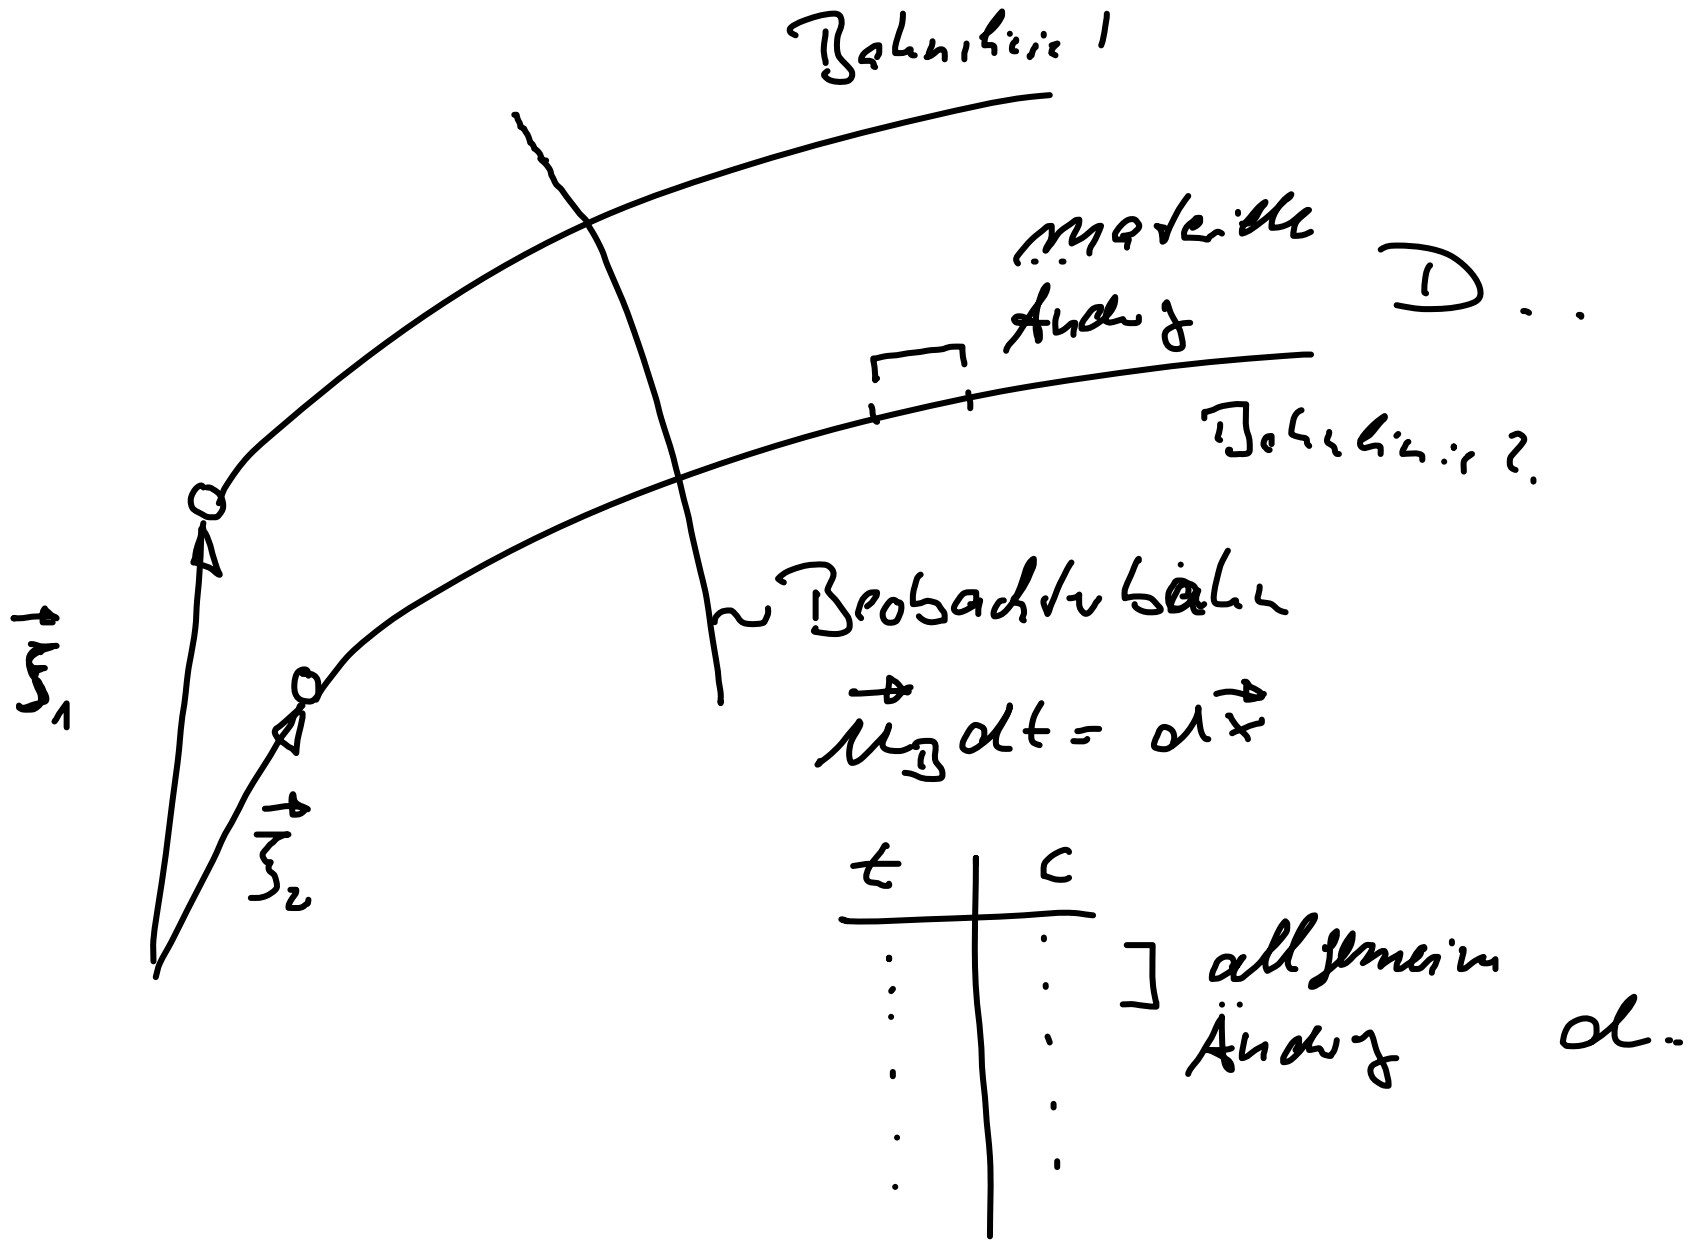 Bahnlinie 1
materielle
Änderg D...
Bahnlinie 2.
Beobachterbahn
\vec{u}_B dt = d\vec{x}
\vec{ξ}_1
\vec{ξ}_2
t c
allgemein
Änderg d..